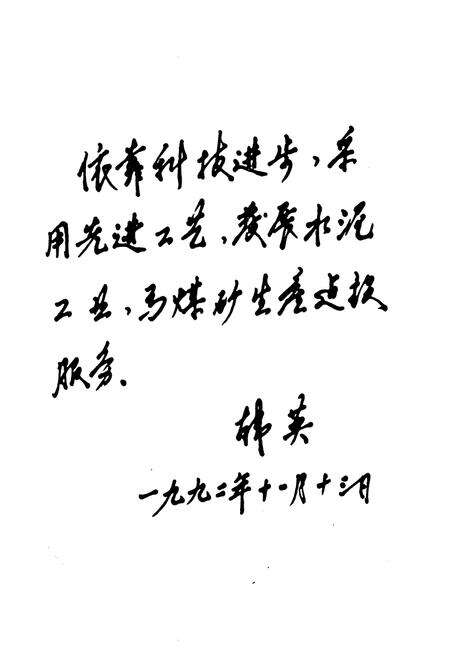 依靠科技进步，采
用先进工艺，發展水泥
工业，为煤矿生产建设
服务。
韩英
一九九二年十一月十三日